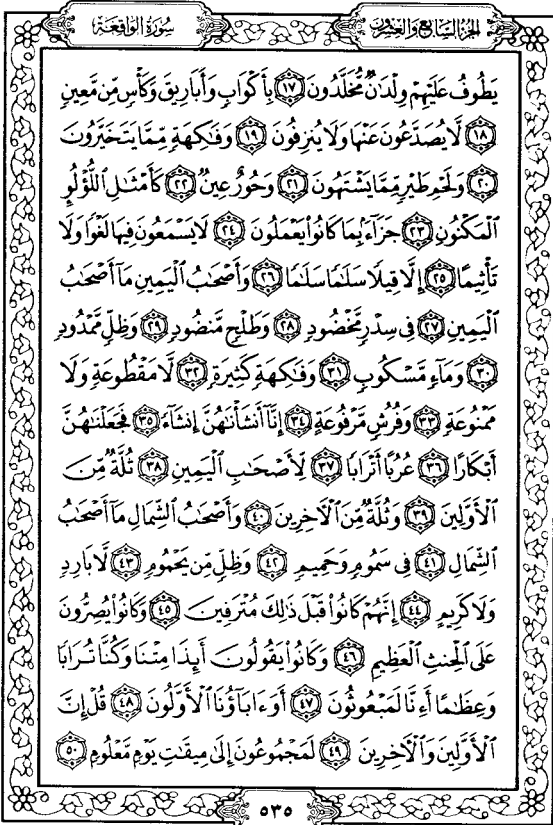 الجزء السابع والعشرون
سورة الواقعة
يَطُوفُ عَلَيْهِمْ وِلْدَٰنٌ مُّخَلَّدُونَ ﴿١٧﴾ بِأَكْوَابٍ وَأَبَارِيقَ وَكَأْسٍ مِّن مَّعِينٍ
﴿١٨﴾ لَّا يُصَدَّعُونَ عَنْهَا وَلَا يُنزِفُونَ ﴿١٩﴾ وَفَٰكِهَةٍ مِّمَّا يَتَخَيَّرُونَ
﴿٢٠﴾ وَلَحْمِ طَيْرٍ مِّمَّا يَشْتَهُونَ ﴿٢١﴾ وَحُورٌ عِينٌ ﴿٢٢﴾ كَأَمْثَٰلِ ٱللُّؤْلُؤِ
ٱلْمَكْنُونِ ﴿٢٣﴾ جَزَآءًۢ بِمَا كَانُوا۟ يَعْمَلُونَ ﴿٢٤﴾ لَا يَسْمَعُونَ فِيهَا لَغْوًا وَلَا
تَأْثِيمًا ﴿٢٥﴾ إِلَّا قِيلًا سَلَٰمًا سَلَٰمًا ﴿٢٦﴾ وَأَصْحَٰبُ ٱلْيَمِينِ مَآ أَصْحَٰبُ
ٱلْيَمِينِ ﴿٢٧﴾ فِى سِدْرٍ مَّخْضُودٍ ﴿٢٨﴾ وَطَلْحٍ مَّنضُودٍ ﴿٢٩﴾ وَظِلٍّ مَّمْدُودٍ
﴿٣٠﴾ وَمَآءٍ مَّسْكُوبٍ ﴿٣١﴾ وَفَٰكِهَةٍ كَثِيرَةٍ ﴿٣٢﴾ لَّا مَقْطُوعَةٍ وَلَا
مَمْنُوعَةٍ ﴿٣٣﴾ وَفُرُشٍ مَّرْفُوعَةٍ ﴿٣٤﴾ إِنَّآ أَنشَأْنَٰهُنَّ إِنشَآءً ﴿٣٥﴾ فَجَعَلْنَٰهُنَّ
أَبْكَارًا ﴿٣٦﴾ عُرُبًا أَتْرَابًا ﴿٣٧﴾ لِّأَصْحَٰبِ ٱلْيَمِينِ ﴿٣٨﴾ ثُلَّةٌ مِّنَ
ٱلْأَوَّلِينَ ﴿٣٩﴾ وَثُلَّةٌ مِّنَ ٱلْءَاخِرِينَ ﴿٤٠﴾ وَأَصْحَٰبُ ٱلشِّمَالِ مَآ أَصْحَٰبُ
ٱلشِّمَالِ ﴿٤١﴾ فِى سَمُومٍ وَحَمِيمٍ ﴿٤٢﴾ وَظِلٍّ مِّن يَحْمُومٍ ﴿٤٣﴾ لَّا بَارِدٍ
وَلَا كَرِيمٍ ﴿٤٤﴾ إِنَّهُمْ كَانُوا۟ قَبْلَ ذَٰلِكَ مُتْرَفِينَ ﴿٤٥﴾ وَكَانُوا۟ يُصِرُّونَ
عَلَى ٱلْحِنثِ ٱلْعَظِيمِ ﴿٤٦﴾ وَكَانُوا۟ يَقُولُونَ أَئِذَا مِتْنَا وَكُنَّا تُرَابًا
وَعِظَٰمًا أَءِنَّا لَمَبْعُوثُونَ ﴿٤٧﴾ أَوَءَابَآؤُنَا ٱلْأَوَّلُونَ ﴿٤٨﴾ قُلْ إِنَّ
ٱلْأَوَّلِينَ وَٱلْءَاخِرِينَ ﴿٤٩﴾ لَمَجْمُوعُونَ إِلَىٰ مِيقَٰتِ يَوْمٍ مَّعْلُومٍ ﴿٥٠﴾
٥٣٥